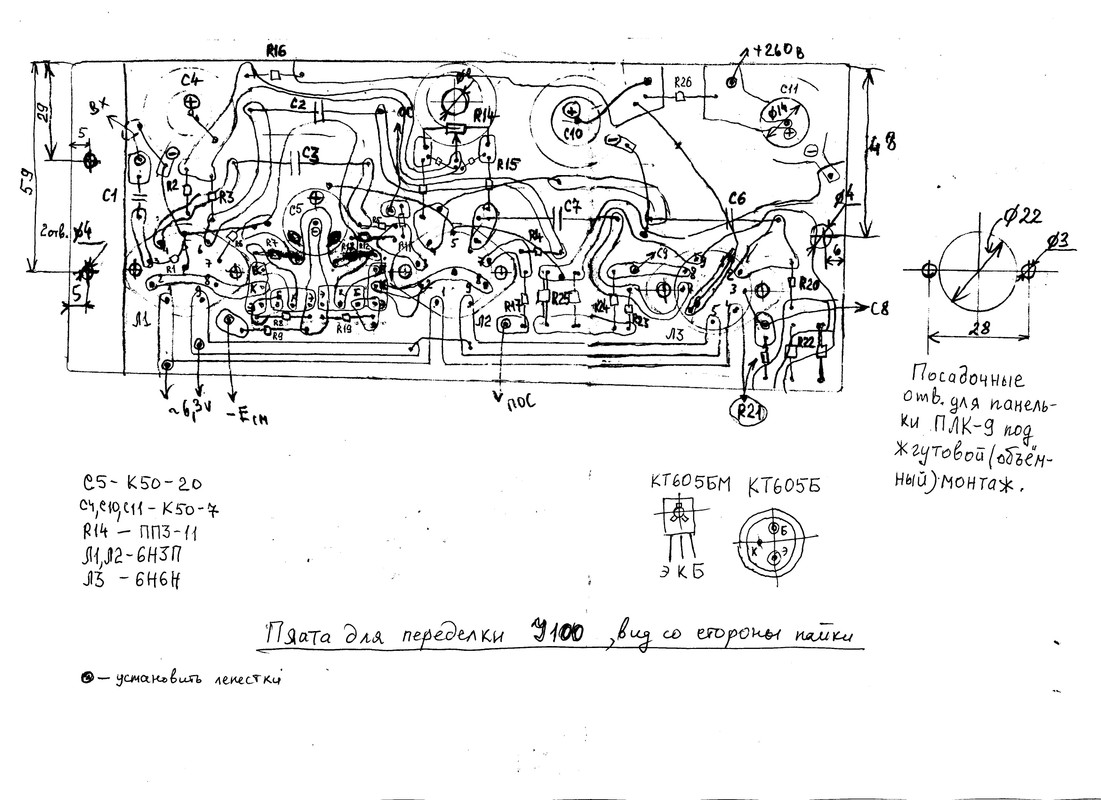 R16
+260в
C4
φ8
R26
C11
29
ВХ
C2
ОС
R14
φ14
C10
48
5
C3
R15
59
C1
R2
R3
C6
φ4
2отв. φ4
C5
C7
R1
R7
R11
R4
C9
6
φ22
φ3
5
Л1
R8
R19
R9
Л2
R17
R25
R24
R23
Л3
R20
C8
R22
28
~6,3V
-Eсм
ПОС
R21
Посадочные
отв. для панель-
ки ПЛК-9 под
жгутовой (объём-
ный) монтаж.
C5- К50-20
C4,C10,C11-К50-7
R14 - ПП3-11
Л1,Л2-6Н3П
Л3 - 6Н6Н
КТ605БМ КТ605Б
Б
К Э
Э К Б
Плата для переделки У100 ,вид со стороны пайки
- установить лепестки